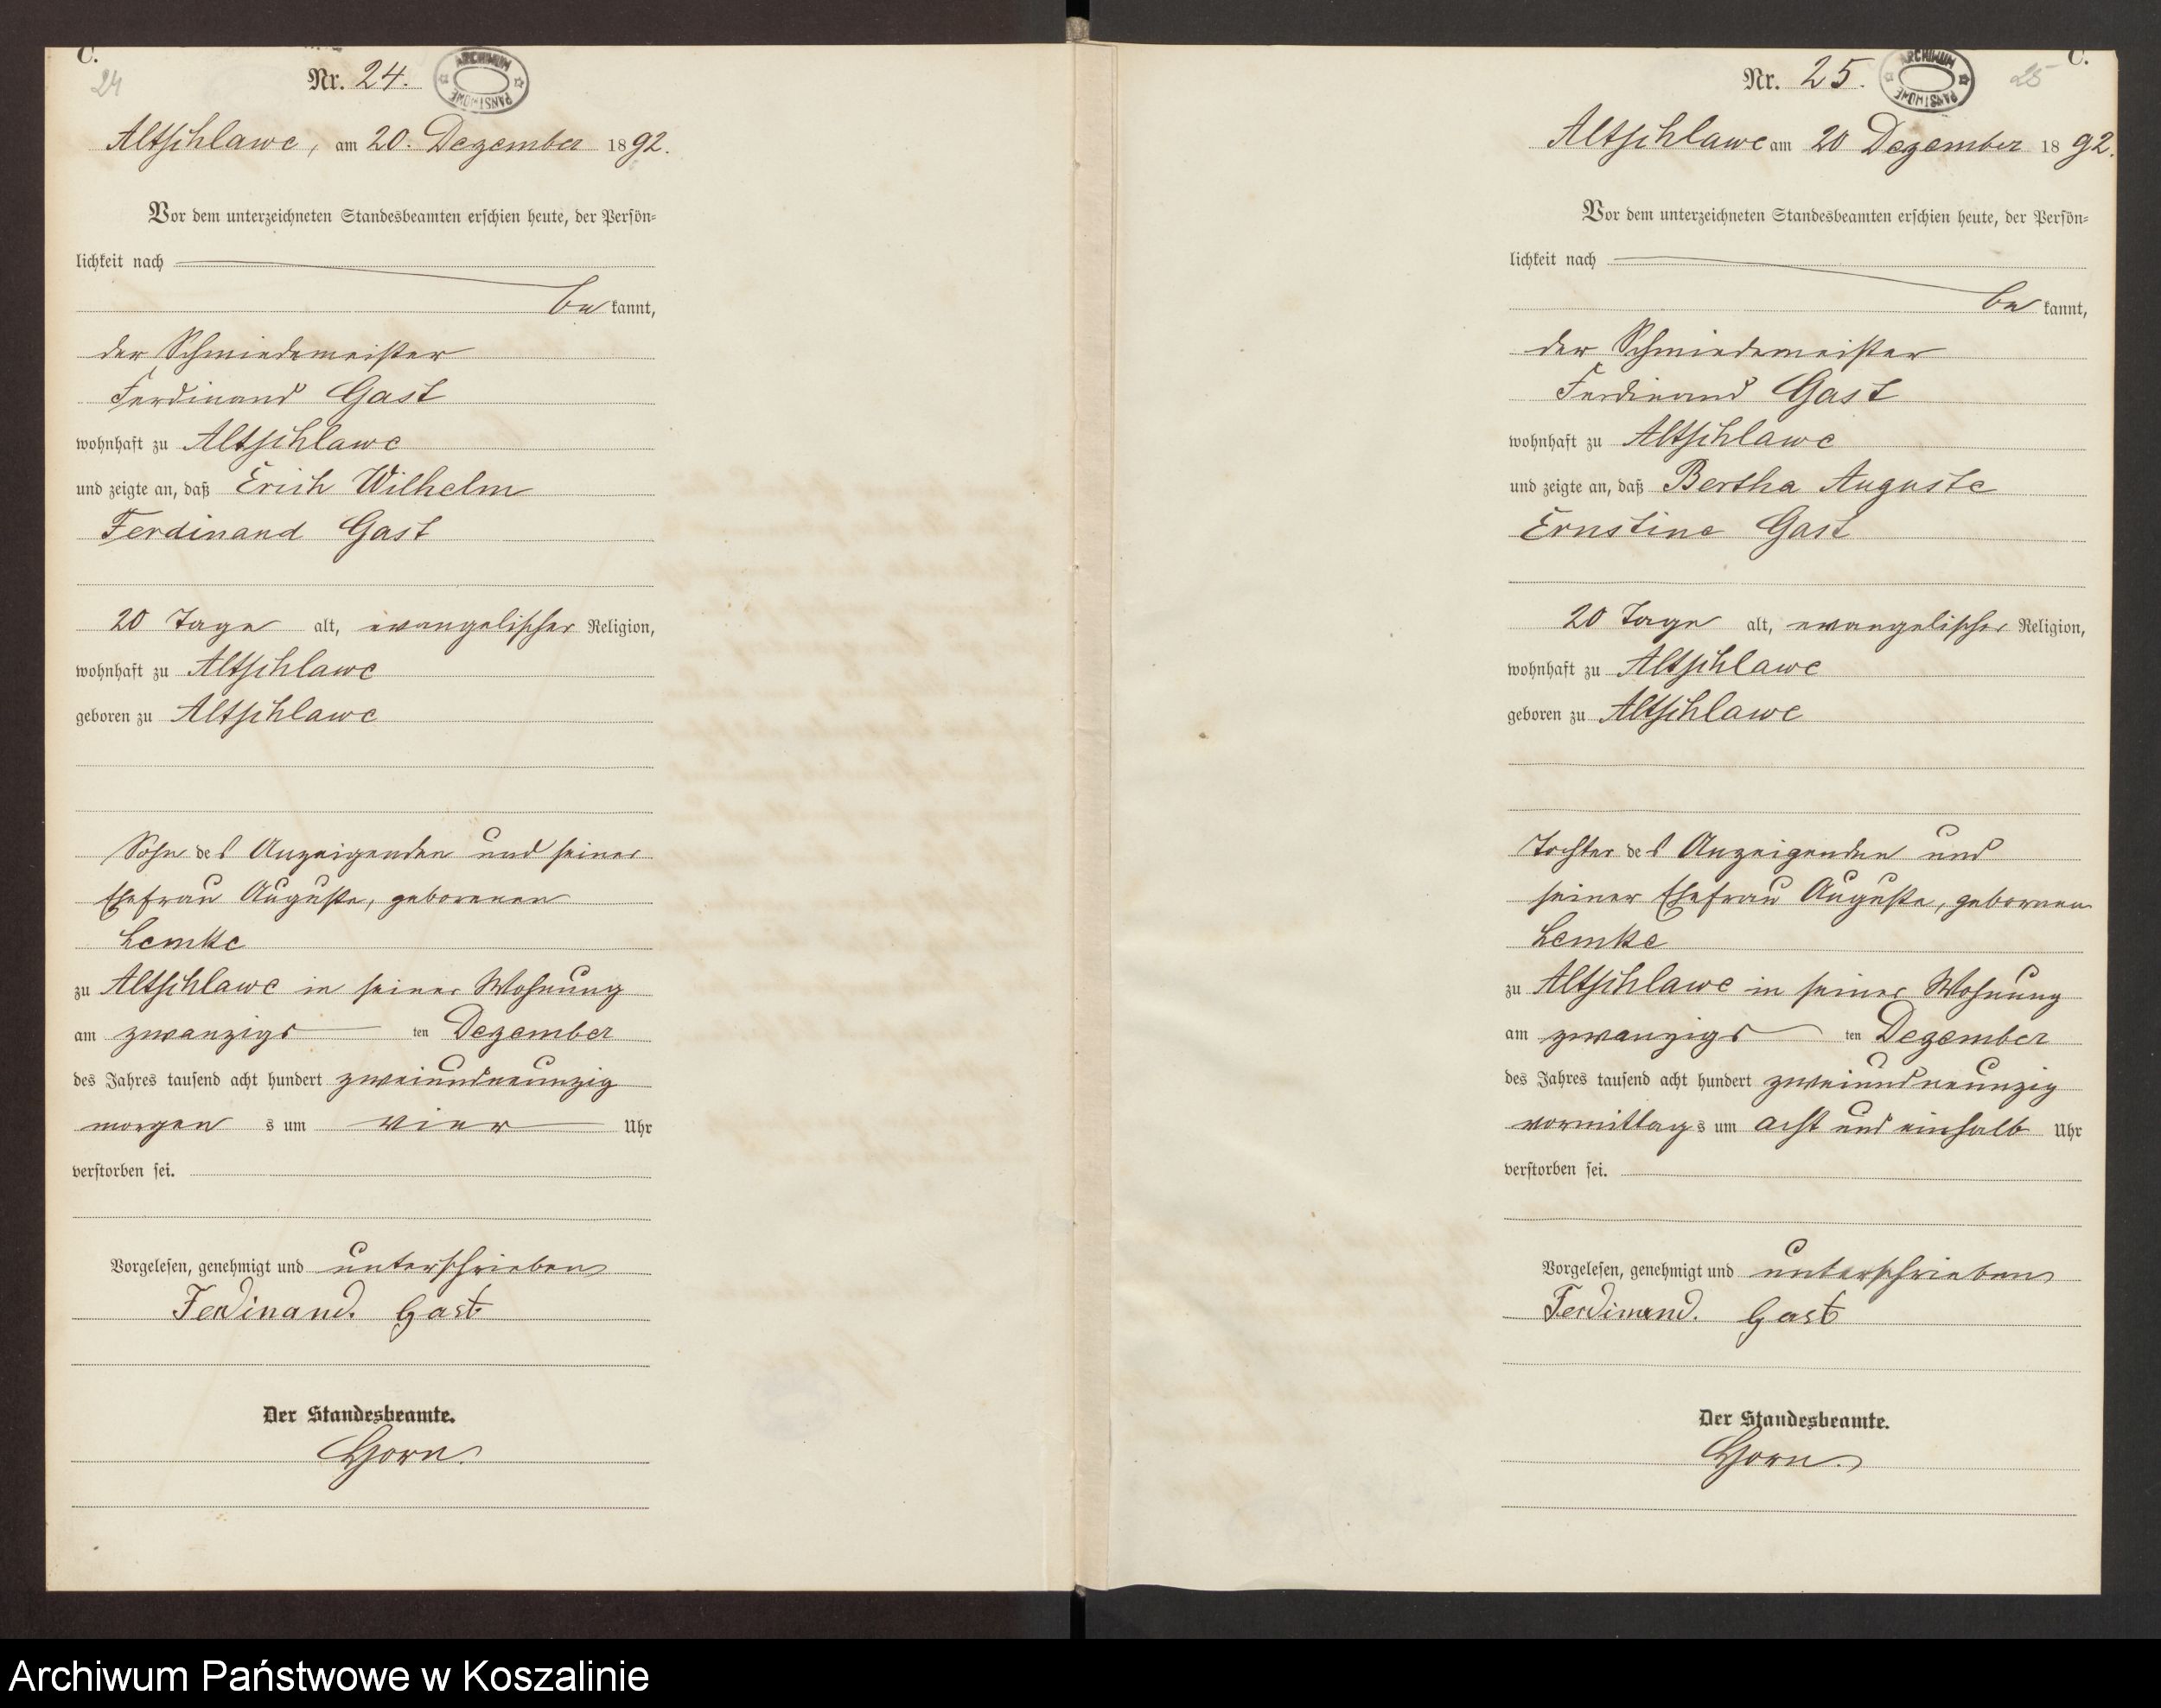 C.
24
Nr. 24.
ARCHIWUM PAŃSTWOWE
Altschlawe, am 20. Dezember 1892.
Vor dem unterzeichneten Standesbeamten erschien heute, der Persön-
lichkeit nach
be kannt,
der Schmiedemeister
Ferdinand Gast
wohnhaft zu Altschlawe
und zeigte an, daß Erich Wilhelm
Ferdinand Gast
20 Tage alt, evangelischer Religion,
wohnhaft zu Altschlawe
geboren zu Altschlawe
Sohn des Anzeigenden und seiner
Ehefrau Auguste, geborenen
Lemke
zu Altschlawe in seiner Wohnung
am zwanzigs ten Dezember
des Jahres tausend acht hundert zweiundneunzig
morgen s um vier Uhr
verstorben sei.
Vorgelesen, genehmigt und unterschrieben
Ferdinand. Gast
Der Standesbeamte.
Horn.
C.
25
Nr. 25.
ARCHIWUM PAŃSTWOWE
Altschlawe am 20 Dezember 1892.
Vor dem unterzeichneten Standesbeamten erschien heute, der Persön-
lichkeit nach
be kannt,
der Schmiedemeister
Ferdinand Gast
wohnhaft zu Altschlawe
und zeigte an, daß Bertha Auguste
Ernstine Gast
20 Tage alt, evangelischer Religion,
wohnhaft zu Altschlawe
geboren zu Altschlawe
Tochter des Anzeigenden und
seiner Ehefrau Auguste, gebornen
Lemke
zu Altschlawe in seiner Wohnung
am zwanzigs ten Dezember
des Jahres tausend acht hundert zweiundneunzig
vormittag s um acht und einhalb Uhr
verstorben sei.
Vorgelesen, genehmigt und unterschrieben
Ferdinand. Gast
Der Standesbeamte.
Horn.
Archiwum Państwowe w Koszalinie